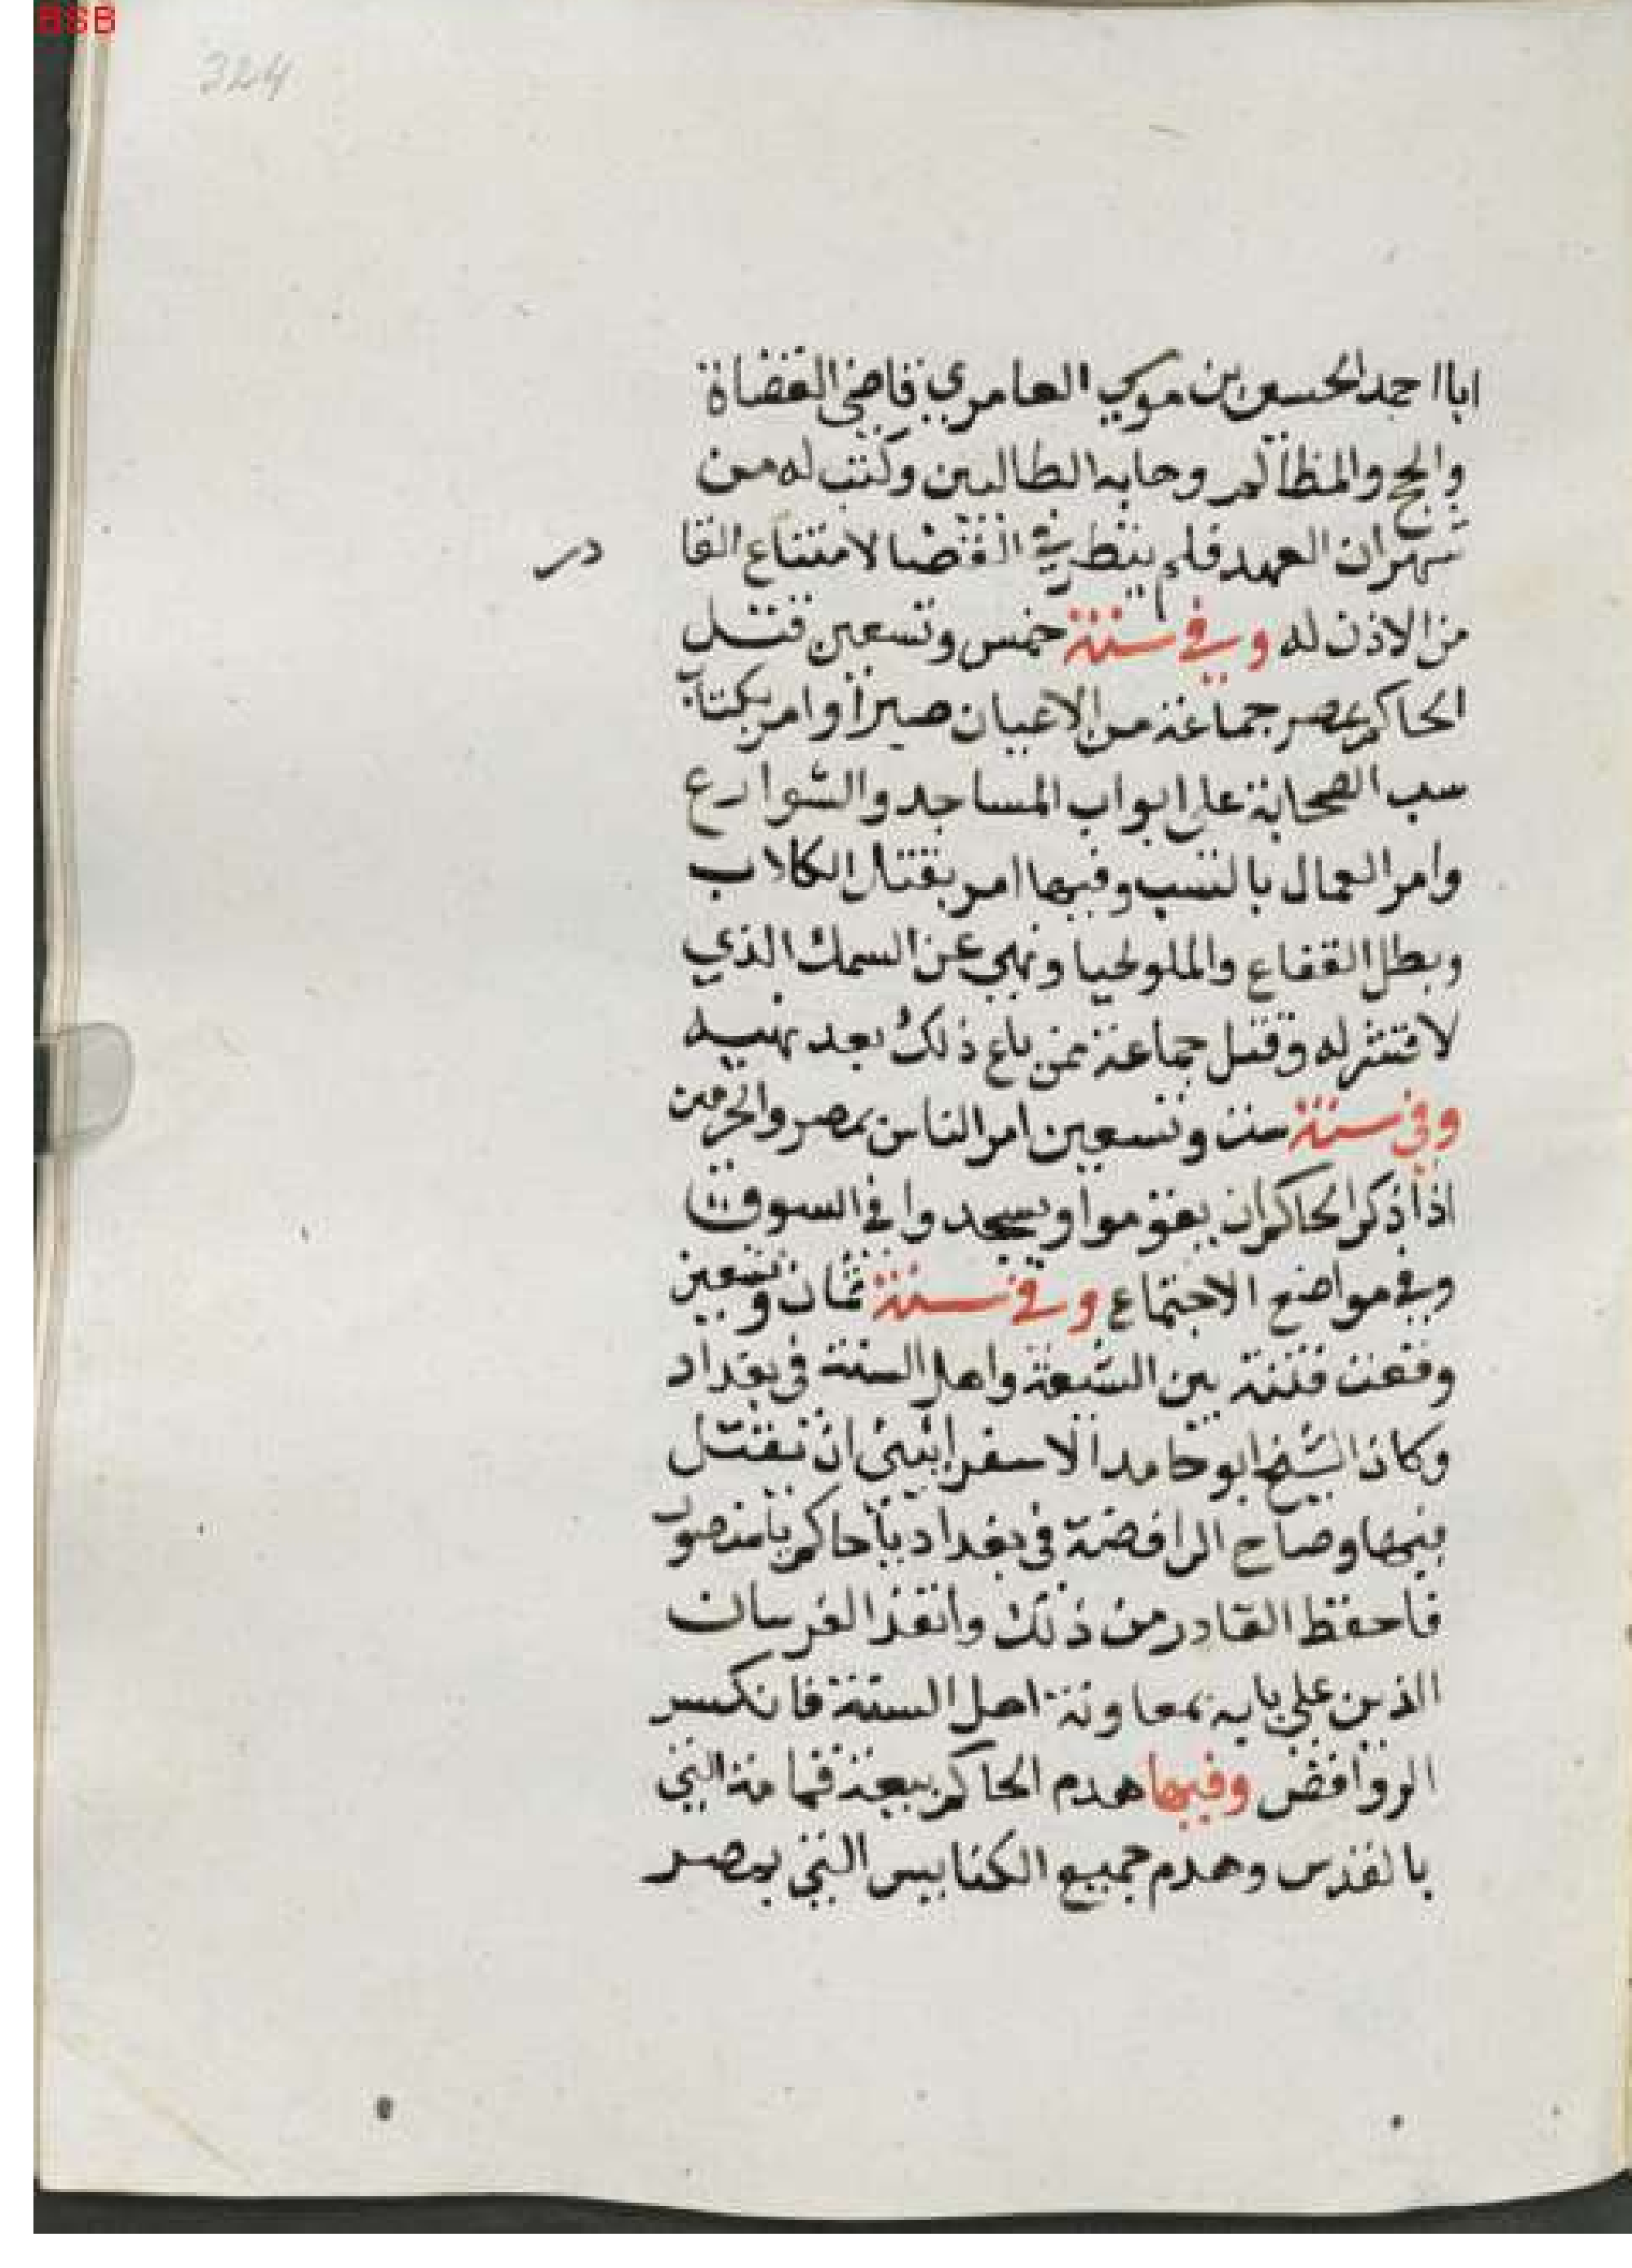 BSB
324
ابا احمد الحسين بن موسي العامري قاضي القضاة
والحج والمظالم وحابه الطالبين وكتب له من
شهران العهد فلم ينظر في القضا لامتناع القا
در
من الاذن له وفي سنة خمس وتسعين قتل
الحاكم بمصر جماعة من الاعيان صبرا وامر بكتابة
سب الصحابة علي ابواب المساجد والشوارع
وامر العمال بالسب وفيها امر بقتل الكلاب
وبطل الفقاع والملوخيا ونهي عن السمك الذي
لا قشر له وقتل جماعة ممن باع ذلك بعد نهيه
وفي سنة ست وتسعين امر الناس بمصر والحرمين
اذا ذكر الحاكم ان يقوموا ويسجدوا في السوق
وفي مواضع الاجتماع وفي سنة ثمان وتسعين
وقعت فتنة بين الشيعة واهل السنة في بغداد
وكاد الشيخ ابو حامد الاسفرايني ان يقتل
فيها وصاح الرافضة في بغداد يا حاكم يا منصور
فاحفظ القادر من ذلك وانفذ الفرسان
الذين علي بابه بمعاونة اهل السنة فانكسر
الروافض وفيها هدم الحاكم بيعة قمامة التي
بالقدس وهدم جميع الكنايس التي بمصر